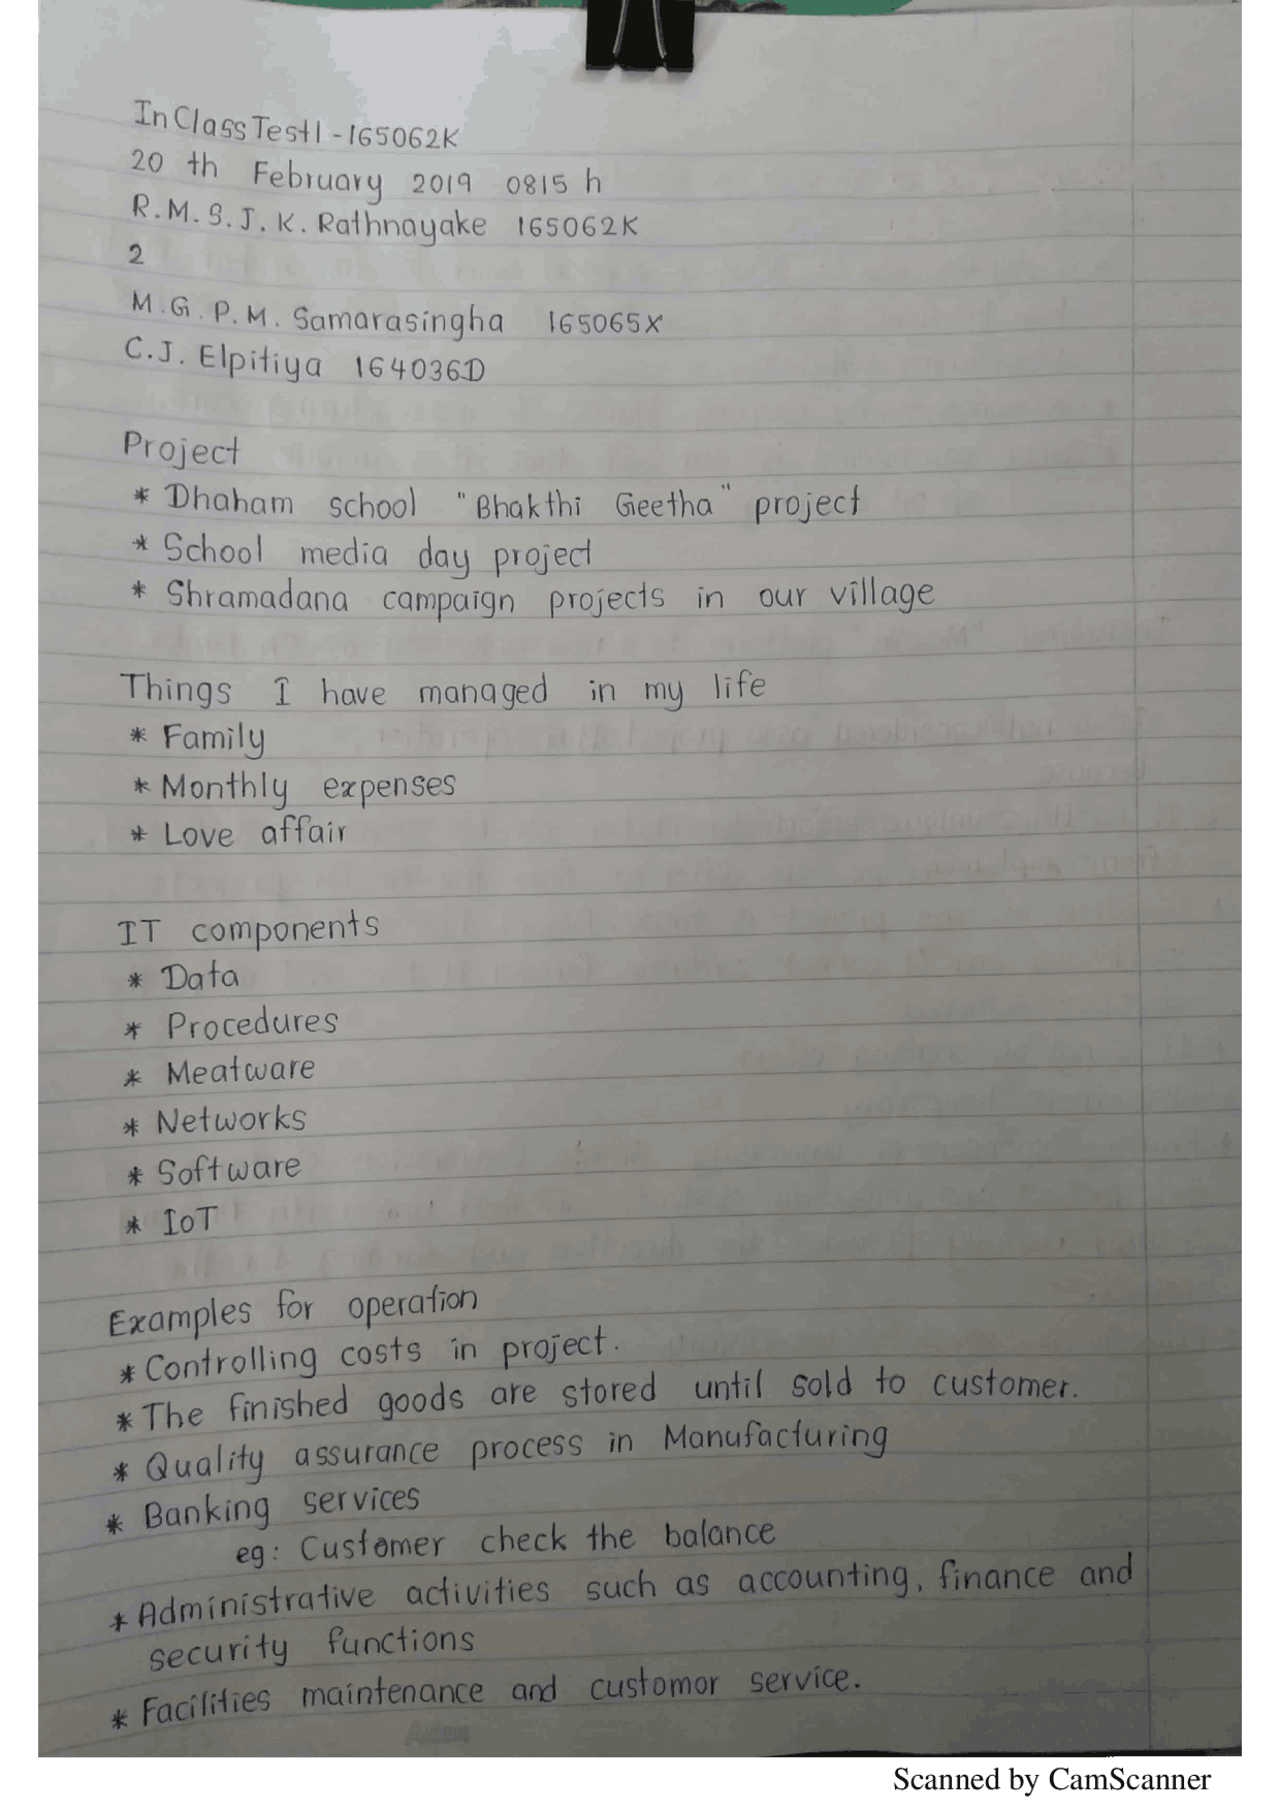 InClassTest1 - 165062K
20 th February 2019 0815 h
R.M.S.J.K. Rathnayake 165062K
2
M.G.P.M. Samarasingha 165065X
C.J. Elpitiya 164036D
Project
* Dhaham school "Bhakthi Geetha" project
* School media day project
* Shramadana campaign projects in our village
Things I have managed in my life
* Family
* Monthly expenses
* Love affair
IT components
* Data
* Procedures
* Meatware
* Networks
* Software
* IoT
Examples for operation
* Controlling costs in project.
* The finished goods are stored until sold to customer.
* Quality assurance process in Manufacturing
* Banking services
eg: Customer check the balance
* Administrative activities such as accounting, finance and
security functions
* Facilities maintenance and customor service.
Scanned by CamScanner